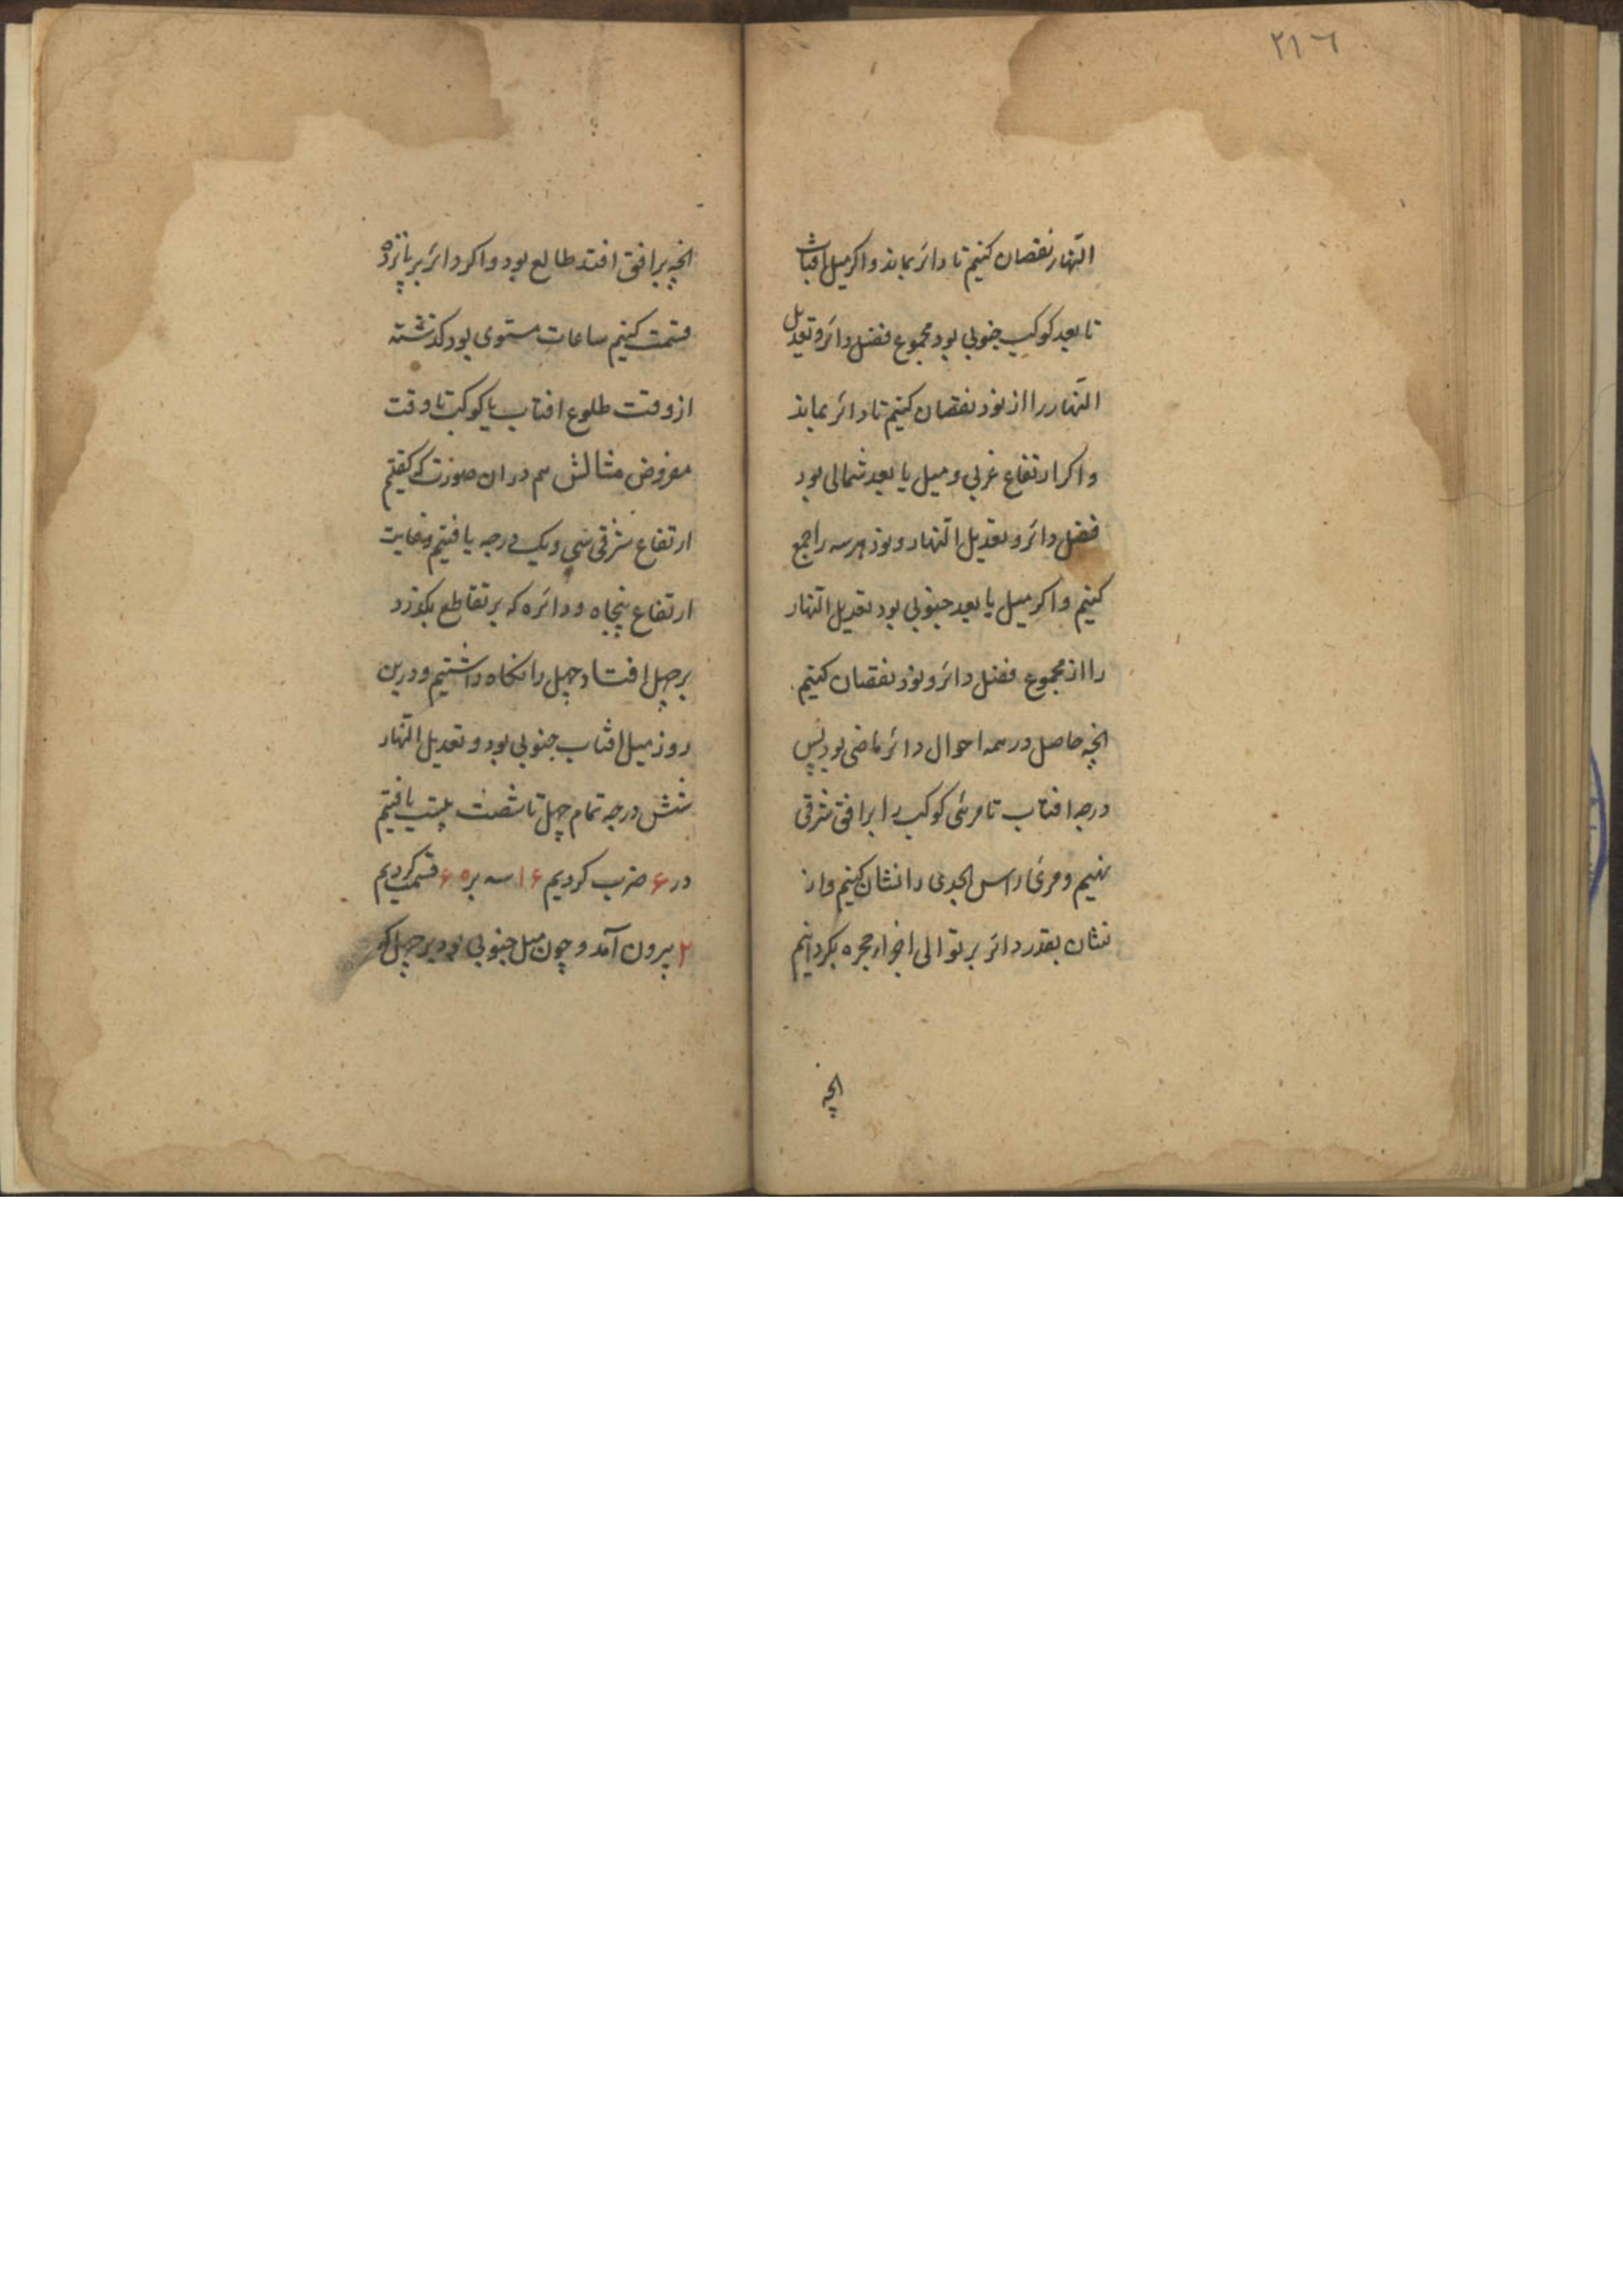 ٢١٦
النهار نقصان كنيم تا دائر بماند واكر ميل افتاب
تا بعد كوكب جنوبى بود مجموع فضل دائر و تعديل
النهار را از نود نقصان كنيم تا دائر بماند
واكر ارتفاع غربى و ميل يا بعد شمالى بود
فضل دائر و تعديل النهار و نود هرسه را جمع
كنيم واكر ميل يا بعد جنوبى بود تعديل النهار
را از مجموع فضل دائر و نود نقصان كنيم
انچه حاصل در همه احوال دائر ماضى بود پس
درجه افتاب تا مرئى كوكب را بر افق شرقى
نهيم و مرئ راس الجدى را نشان كنيم واز
نشان بقدر دائر بر توالى اجزاء حجره بكردانيم
انچه
انچه بر افق افتد طالع بود واكر دائر بر پانزده
قسمت كنيم ساعات مستوى بود كذشته
از وقت طلوع افتاب يا كوكب تا وقت
مفروض مثالش هم در ان صورت كه كفتيم
ارتفاع شرقى سى ويك درجه يافتيم وغايت
ارتفاع پنجاه و دائره كه بر تقاطع بكذرد
بر چهل افتاد چهل را نكاه داشتيم ودرين
روز ميل افتاب جنوبى بود و تعديل النهار
شش درجه تمام چهل تا شصت بيست يافتيم
در ۶ ضرب كرديم ۱۶ سه بر ۶۰ قسمت كرديم
۲ بيرون آمد و چون ميل جنوبى بود بر چهل كه